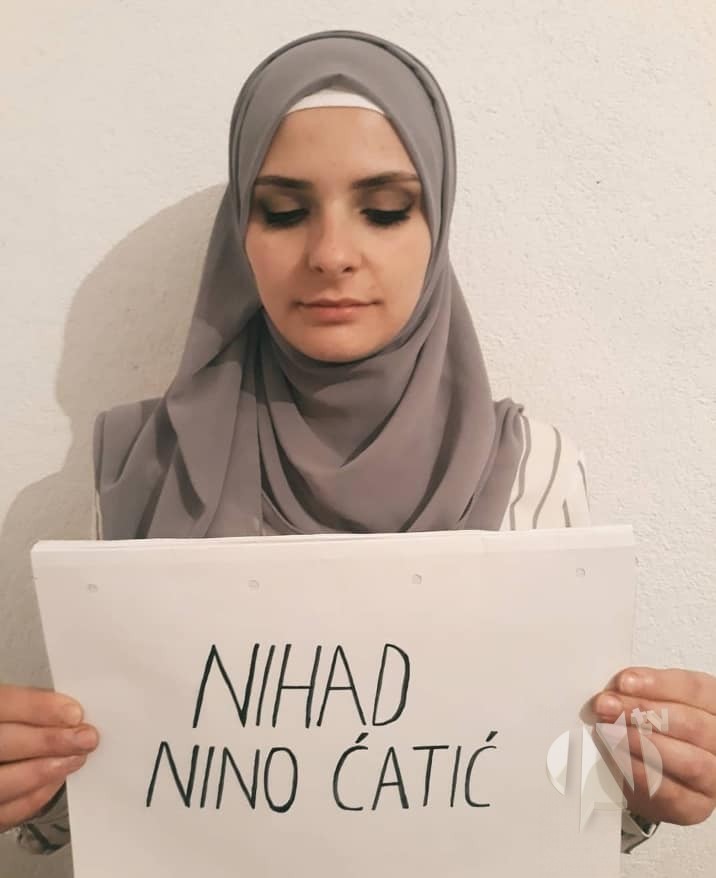 NIHAD
NINO ĆATIĆ
tv